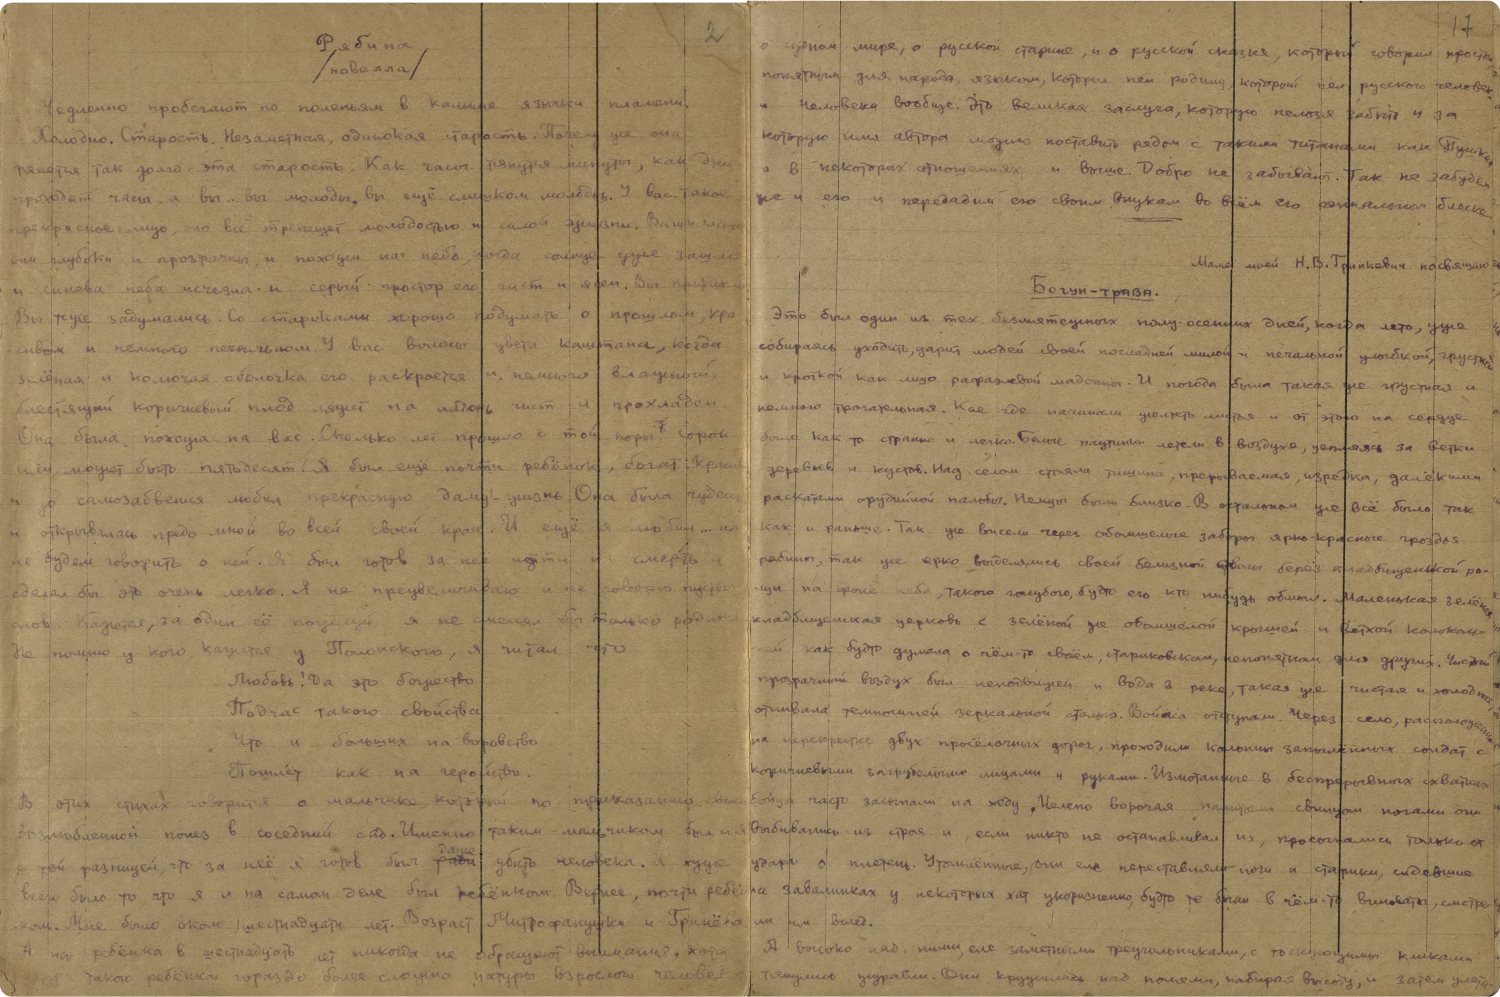 2
Рябина
/новелла/
Медленно пробегают по поленьям в камине язычки пламени.
Холодно. Старость. Незаметная, одинокая старость. Почему же она
тянется так долго эта старость. Как часы тянутся минуты, как дни
проходят часы, а вы.. вы молоды, вы ещё слишком молоды. У вас такое
прекрасное лицо, оно всё трепещет молодостью и силой жизни. Ваши глаза
они глубоки и прозрачны, и похожи на небо, когда солнце уже зашло
и синева неба исчезла и серый простор его чист и ясен. Вы
Вы тоже задумались. Со стариками хорошо подумать о прошлом, кра
сивом и немного печальном. У вас волосы цвета каштана, когда
зелёная и колючая оболочка его раскроется и, немного влажный,
блестящий коричневый плод ляжет на ладонь чист и прохладен.
Она была похожа на вас. Сколько лет прошло с той поры? Сорок
или может быть пятьдесят. Я был ещё почти ребёнок, богат
и до самозабвения любил прекрасную даму-жизнь. Она была чудесн
и открывалась предо мной во всей своей красе. И ещё я любил... но
не будем говорить о ней. Я был готов за неё идти на смерть и
сделал бы это очень легко. Я не преувеличиваю и не говорю
слов. Кажется, за один её поцелуй я не сменял бы только родины
Не помню у кого кажется у Полонского, я читал что
Любовь! Да это божество
Подчас такого свойства
Что и больших на воровство
Пошлёт как на геройство.
В этих стихах говорится о мальчике, который по приказанию своей
возлюбленной полез в соседний сад. Именно таким мальчиком был и я
с той разницей, что за неё я готов был даже убить человека. А хуже
всего было то что я и на самом деле был ребёнком. Вернее, почти ребён
ком. Мне было около шестнадцати лет. Возраст Митрофанушки и Гринёва
А на ребёнка в шестнадцать лет никогда не обращают внимания, хотя
такого ребёнка гораздо более сложна натуры взрослого человека
17
о чудном мире, о русской старине, и о русской сказке, который говорил простым
понятным для народа языком, который пел родину, который пел русского человека
и человека вообще. Это великая заслуга, которую нельзя забыть и за
которую имя автора можно поставить рядом с такими титанами как Пушкин
а в некоторых отношениях и выше. Добро не забывают. Так не забудем
же и его и передадим его своим внукам во всём его гениальном блеске.
Маме моей Н.В. Гринкевич посвящаю
Богун-трава.
Это был один из тех безмятежных полу-осенних дней, когда лето, уже
собираясь уходить, дарит людей своей последней милой и печальной улыбкой, грустной
и кроткой как лицо рафаэлевой мадонны. И погода была такая же грустная и
немного трогательная. Кое где начинали желтеть листья и от этого на сердце
было как то странно и легко. Белые паутинки летели в воздухе, цепляясь за ветки
деревьев и кустов. Над селом стояла тишина, прерываемая, изредка, далёкими
раскатами орудийной пальбы. Немцы были близко. В остальном же всё было так
как и раньше. Так же висели через обомшелые заборы ярко-красные гроздья
рябины, так же ярко выделялись своей белизной стволы берёз кладбищенской ро-
щи на фоне неба, такого голубого, будто его кто нибудь обмыл. Маленькая зелёная
кладбищенская церковь с зелёной же обомшелой крышей и ветхой колоколь-
ней как будто думала о чём-то своём, стариковском, непонятном для других. Чистый
прозрачный воздух был неподвижен и вода в реке, такая же чистая и холодная,
отливала темносиней зеркальной сталью. Войска отступали. Через село, расположенное
на перекрестке двух просёлочных дорог, проходили колонны запылённых солдат с
коричневыми загрубелыми лицами и руками. Измотанные в беспрерывных схватках
бойцы часто засыпали на ходу. Нелепо ворочая налитыми свинцом ногами они
выбивались из строя и, если никто не останавливал их, просыпались только от
удара о плетень. Утомлённые, они еле переставляли ноги и старики, сидевшие
на завалинках у некоторых хат укоризненно, будто те были в чём-то виноваты, смотре-
ли им вслед.
А высоко над ними, еле заметными треугольниками, с тоскующими кликами
тянулись журавли. Они кружились над полями, набирая высоту, и затем улета-